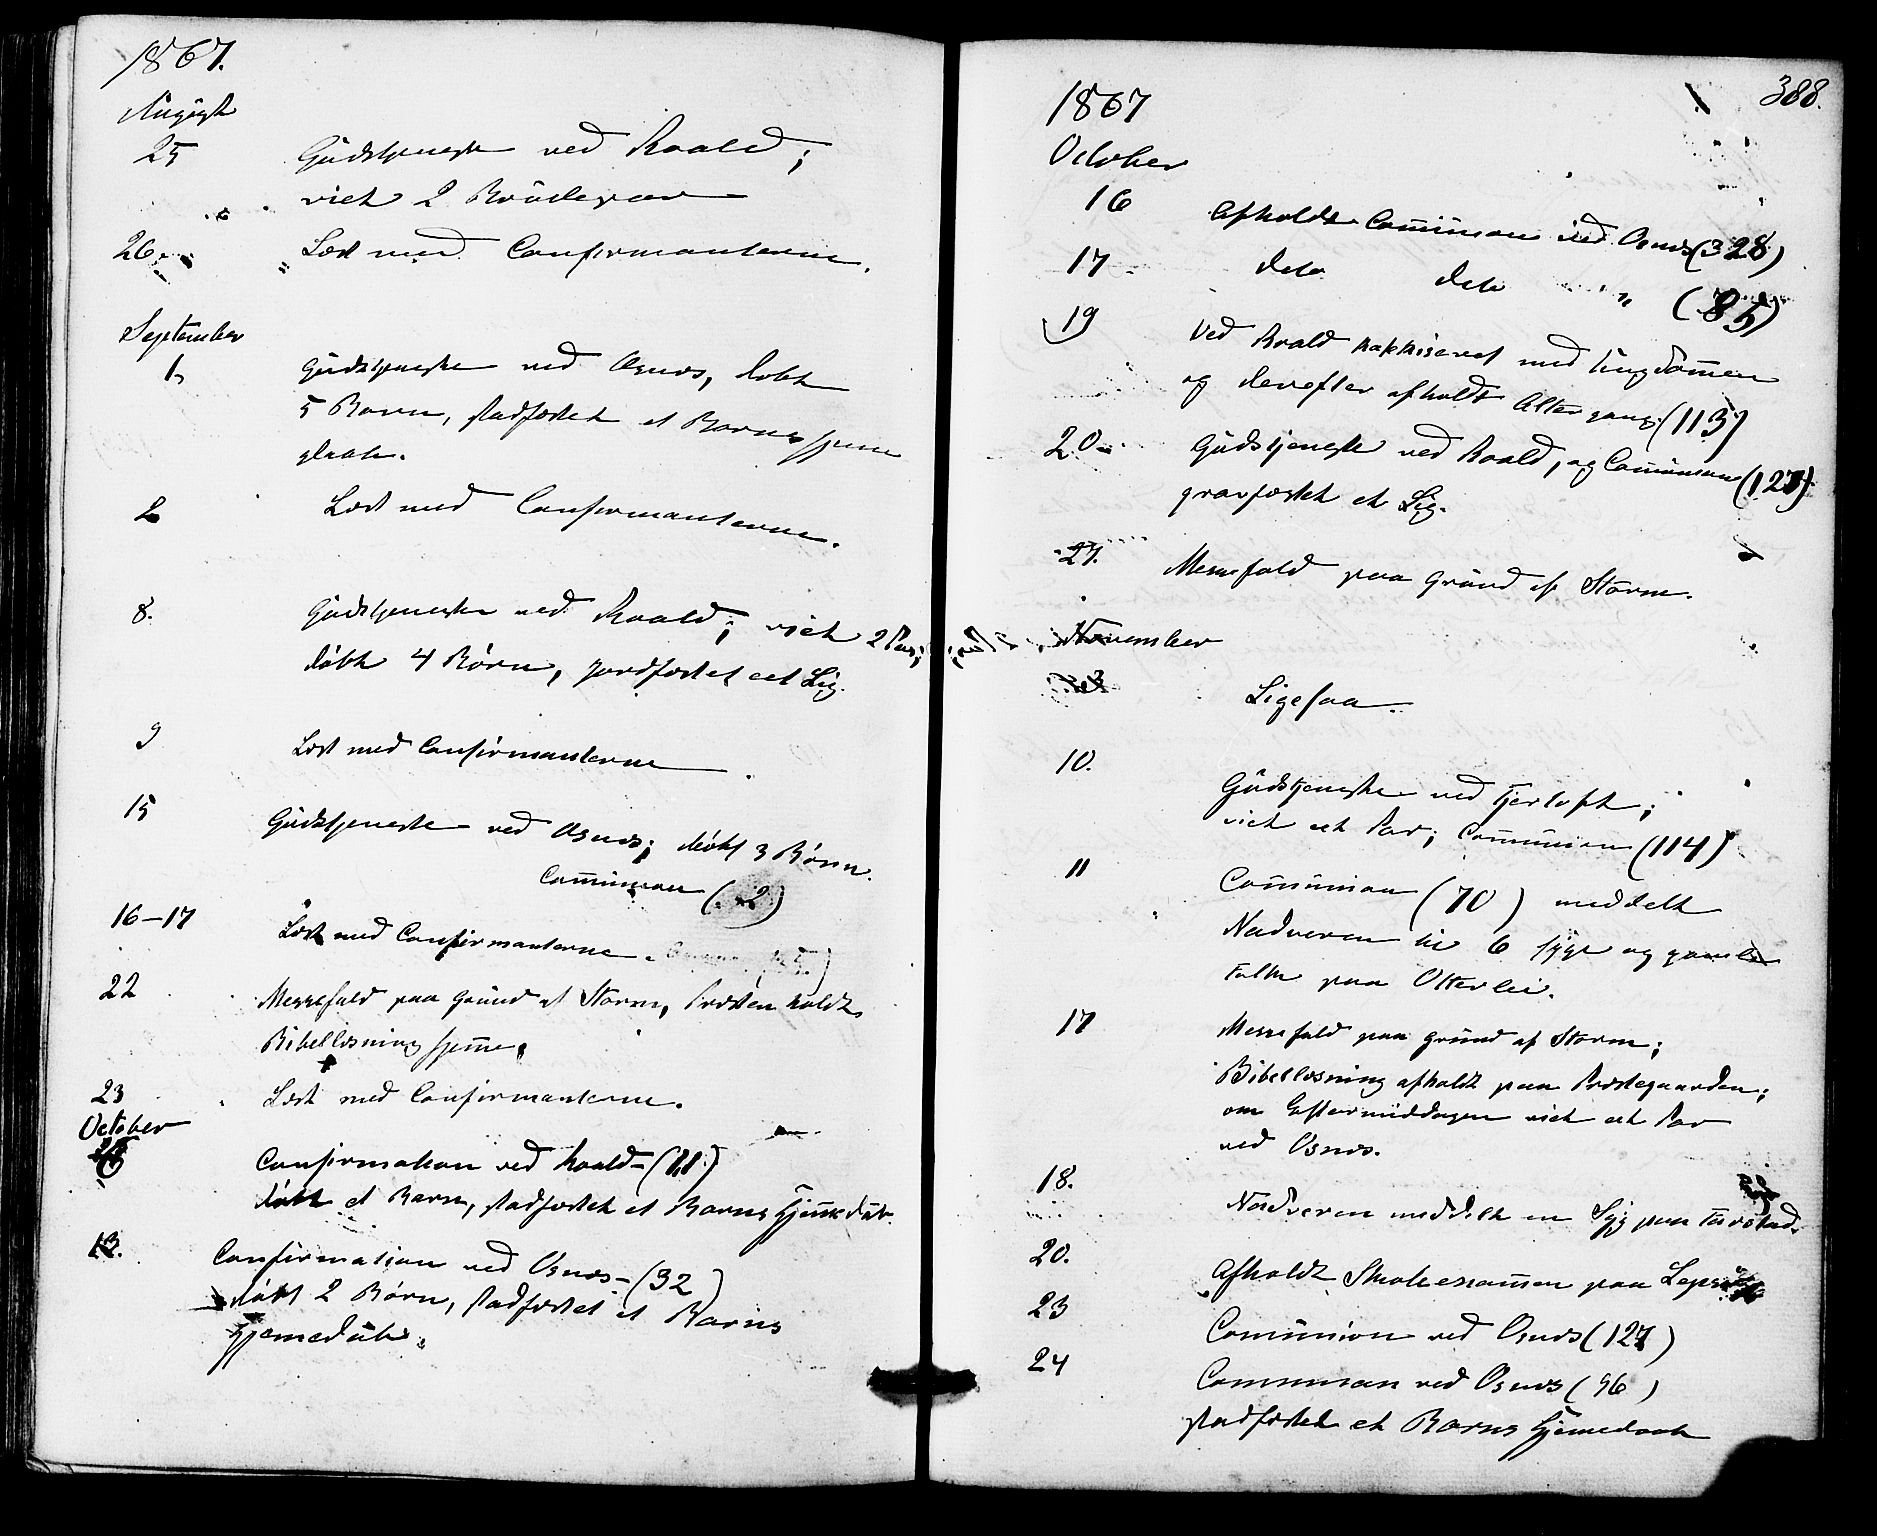 1867.
August
25 Gudstjeneste ved Roald;
viet 2 Brudepar
26. Læst med Confirmanterne.
September
1. Gudstjeneste ved Osnæs, døbt
5 Børn, stadfæstet et Barns hjemme
daab.
2 Læst med Confirmanterne.
8. Gudstjeneste ved Roald; viet 2 Par;
døbt 4 Børn, jordfæstet eet Lig.
9 Læst med Confirmanterne.
15 Gudstjeneste ved Osnæs; døbt 3 Børn.
Communion ( 2)
16-17 Læst med Confirmanterne.
22 Messefald paa Grund af Storm, Præsten holdt
Bibellæsning hjemme.
23 Læst med Confirmanterne.
October
6 Confirmation ved Roald-
døbt et Barn, stadfæstet et Barns Hjemmedåb.
13. Confirmation ved Osnæs-(32)
døbt 2 Børn, stadfæstet et Barns
Hjemmedåb.
388.
1867
October
16 Afholdt Communion ved Osnæs (328)
17 dito dito " (85)
19 Ved Roald katkiseret med Ungdommen
og derefter afholdt Altergang. (113)
20 Gudstjeneste ved Roald, og Communion (127)
gravfæstet et Lig.
27. Messefald paa Grund af Storm.
November
3 Ligesaa.
10. Gudstjeneste ved Fjertoft;
viet eet Par; Communion (114)
11 Communion (70) meddelt
Nadveren til 6 syge og gamle
Folk paa Otterlei.
17 Messefald paa Grund af Storm;
Bibellæsning afholdt paa Præstegaarden;
om Eftermiddagen viet eet Par
ved Osnæs.
18. Nadveren meddelt en Syg paa
20. Afholdt Skoleexamen paa Lepsø
23 Communion ved Osnæs (127)
24 Communion ved Osnæs (96)
stadfæstet et Barns Hjemmedaab